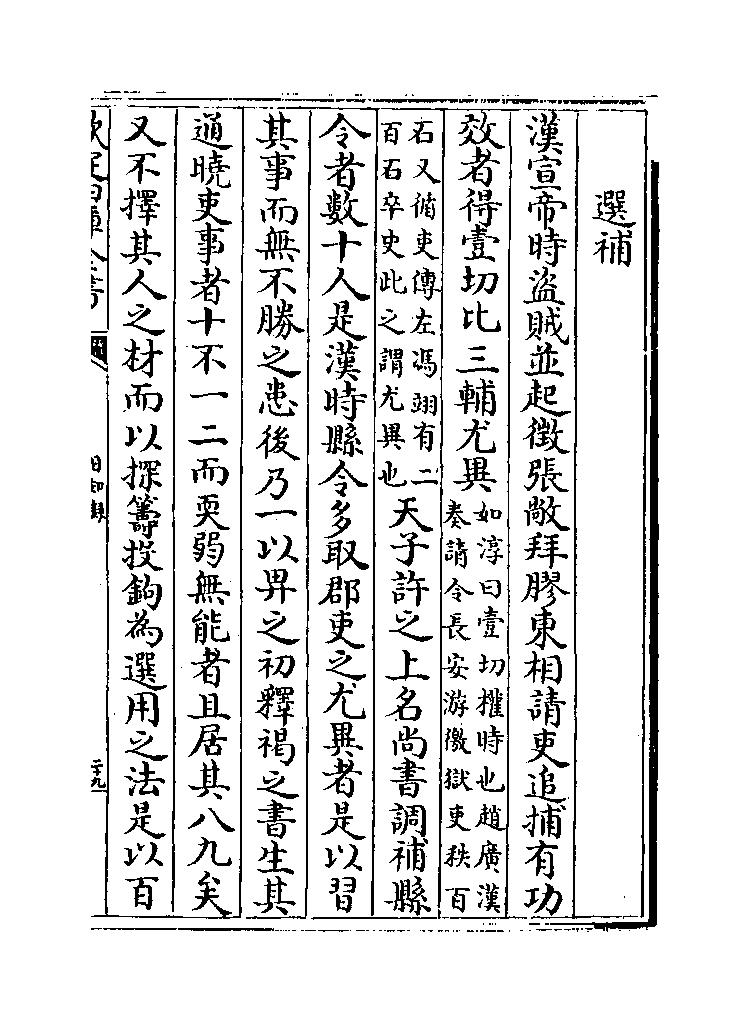 選補
漢宣帝時盜賊並起徵張敞拜膠東相請吏追捕有功
效者得壹切比三輔尤異如淳曰壹切權時也趙廣漢
奏請令長安游徼獄吏秩百
石又循吏傳左馮翊有二
百石卒史此之謂尤異也天子許之上名尚書調補縣
令者數十人是漢時縣令多取郡吏之尤異者是以習
其事而無不勝之患後乃一以畀之初釋褐之書生其
通曉吏事者十不一二而耎弱無能者且居其八九矣
又不擇其人之材而以探籌投鉤為選用之法是以百
欽定四庫全書
日知錄
二十九